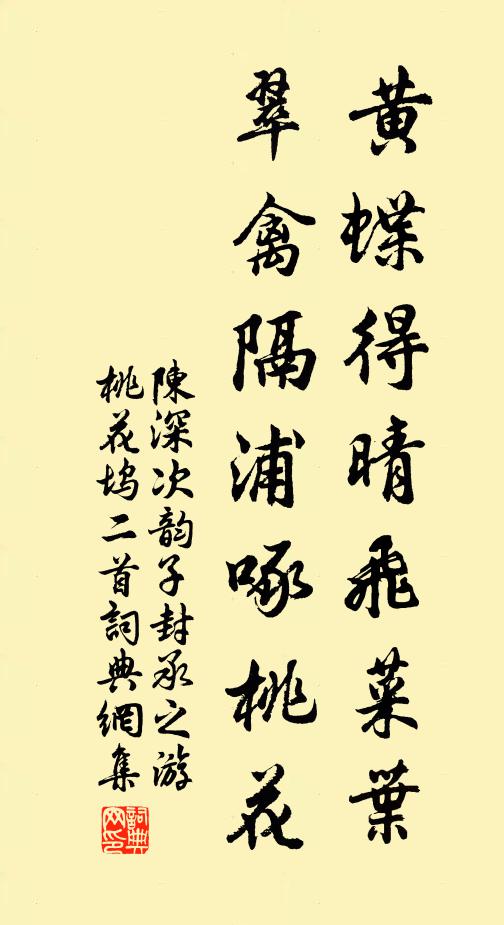 黄蝶得晴飛菜葉
翠禽隔浦啄桃花
陳深次韵子封承之游
桃花塢二首詞典網集
詞典
网印